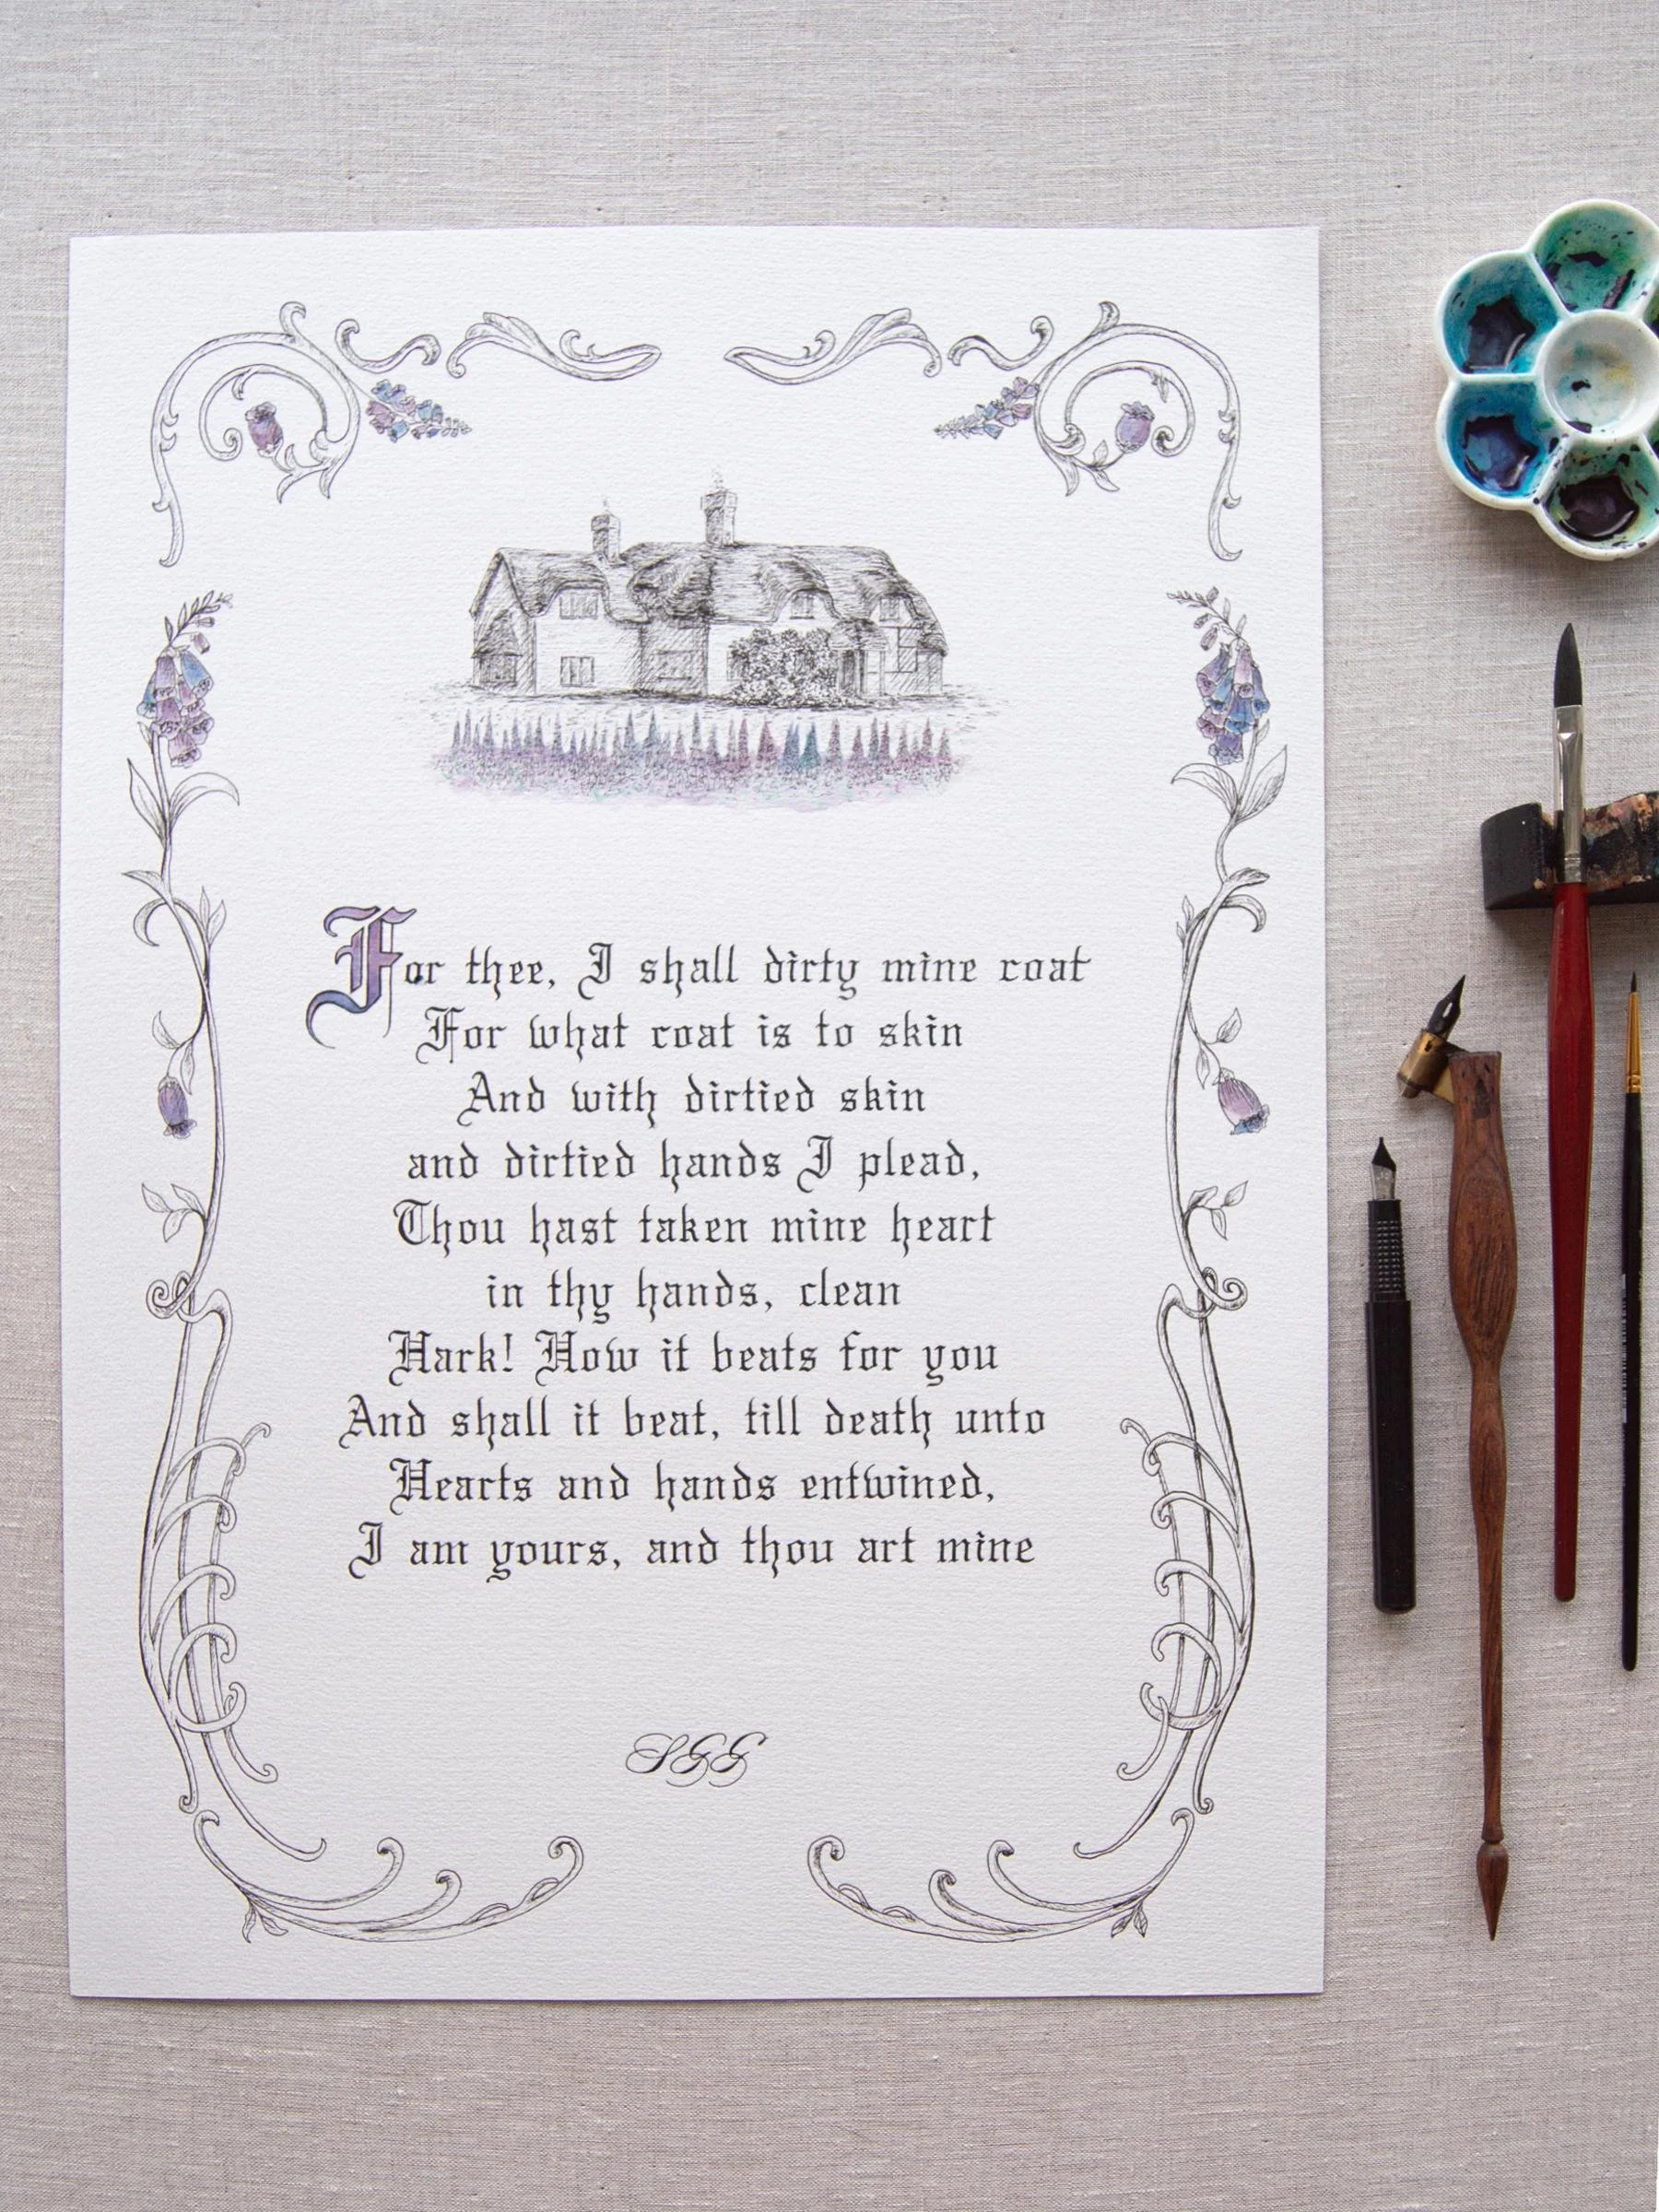 For thee, I shall dirty mine coat
For what coat is to skin
And with dirtied skin
and dirtied hands I plead,
Thou hast taken mine heart
in thy hands, clean
Hark! How it beats for you
And shall it beat, till death unto
Hearts and hands entwined,
I am yours, and thou art mine
SGG